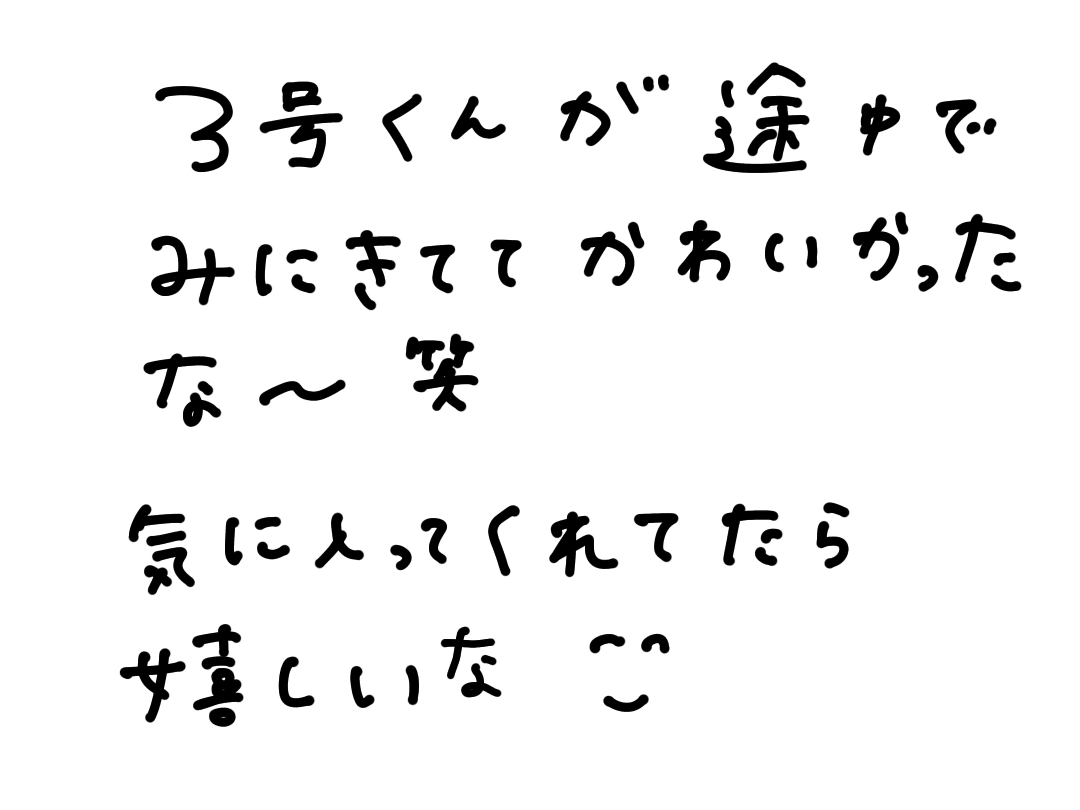 3号くんが途中で
みにきてて かわいかった
な〜 笑
気に入ってくれてたら
嬉しいな